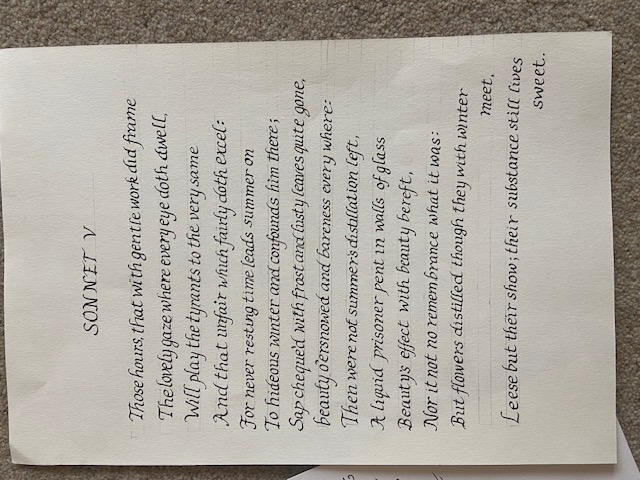 SONNET V
Those hours, that with gentle work did frame
The lovely gaze where every eye doth dwell,
Will play the tyrants to the very same
And that unfair which fairly doth excel:
For never resting time leads summer on
To hideous winter and confounds him there;
Sap chequed with frost and lusty leaves quite gone,
beauty o'ersnowed and bareness every where:
Then were not summer's distillation left,
A liquid prisoner pent in walls of glass
Beauty's effect with beauty bereft,
Nor it not no remembrance what it was:
But flowers distilled though they with winter
meet,
Leese but their show; their substance still lives
sweet.